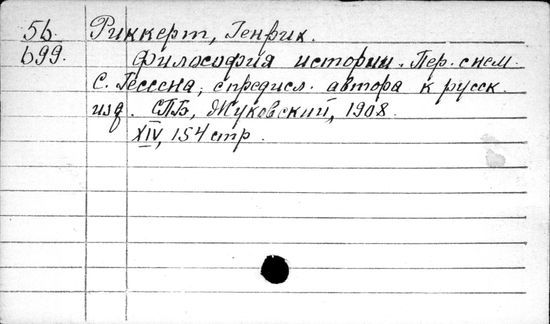 5б. Риккерт, Генрих.
699. Философия истории. Пер. с нем.
С. Гессена, с предисл. автора к русск.
изд. СПБ, Жуковский, 1908.
XIV, 154 стр.